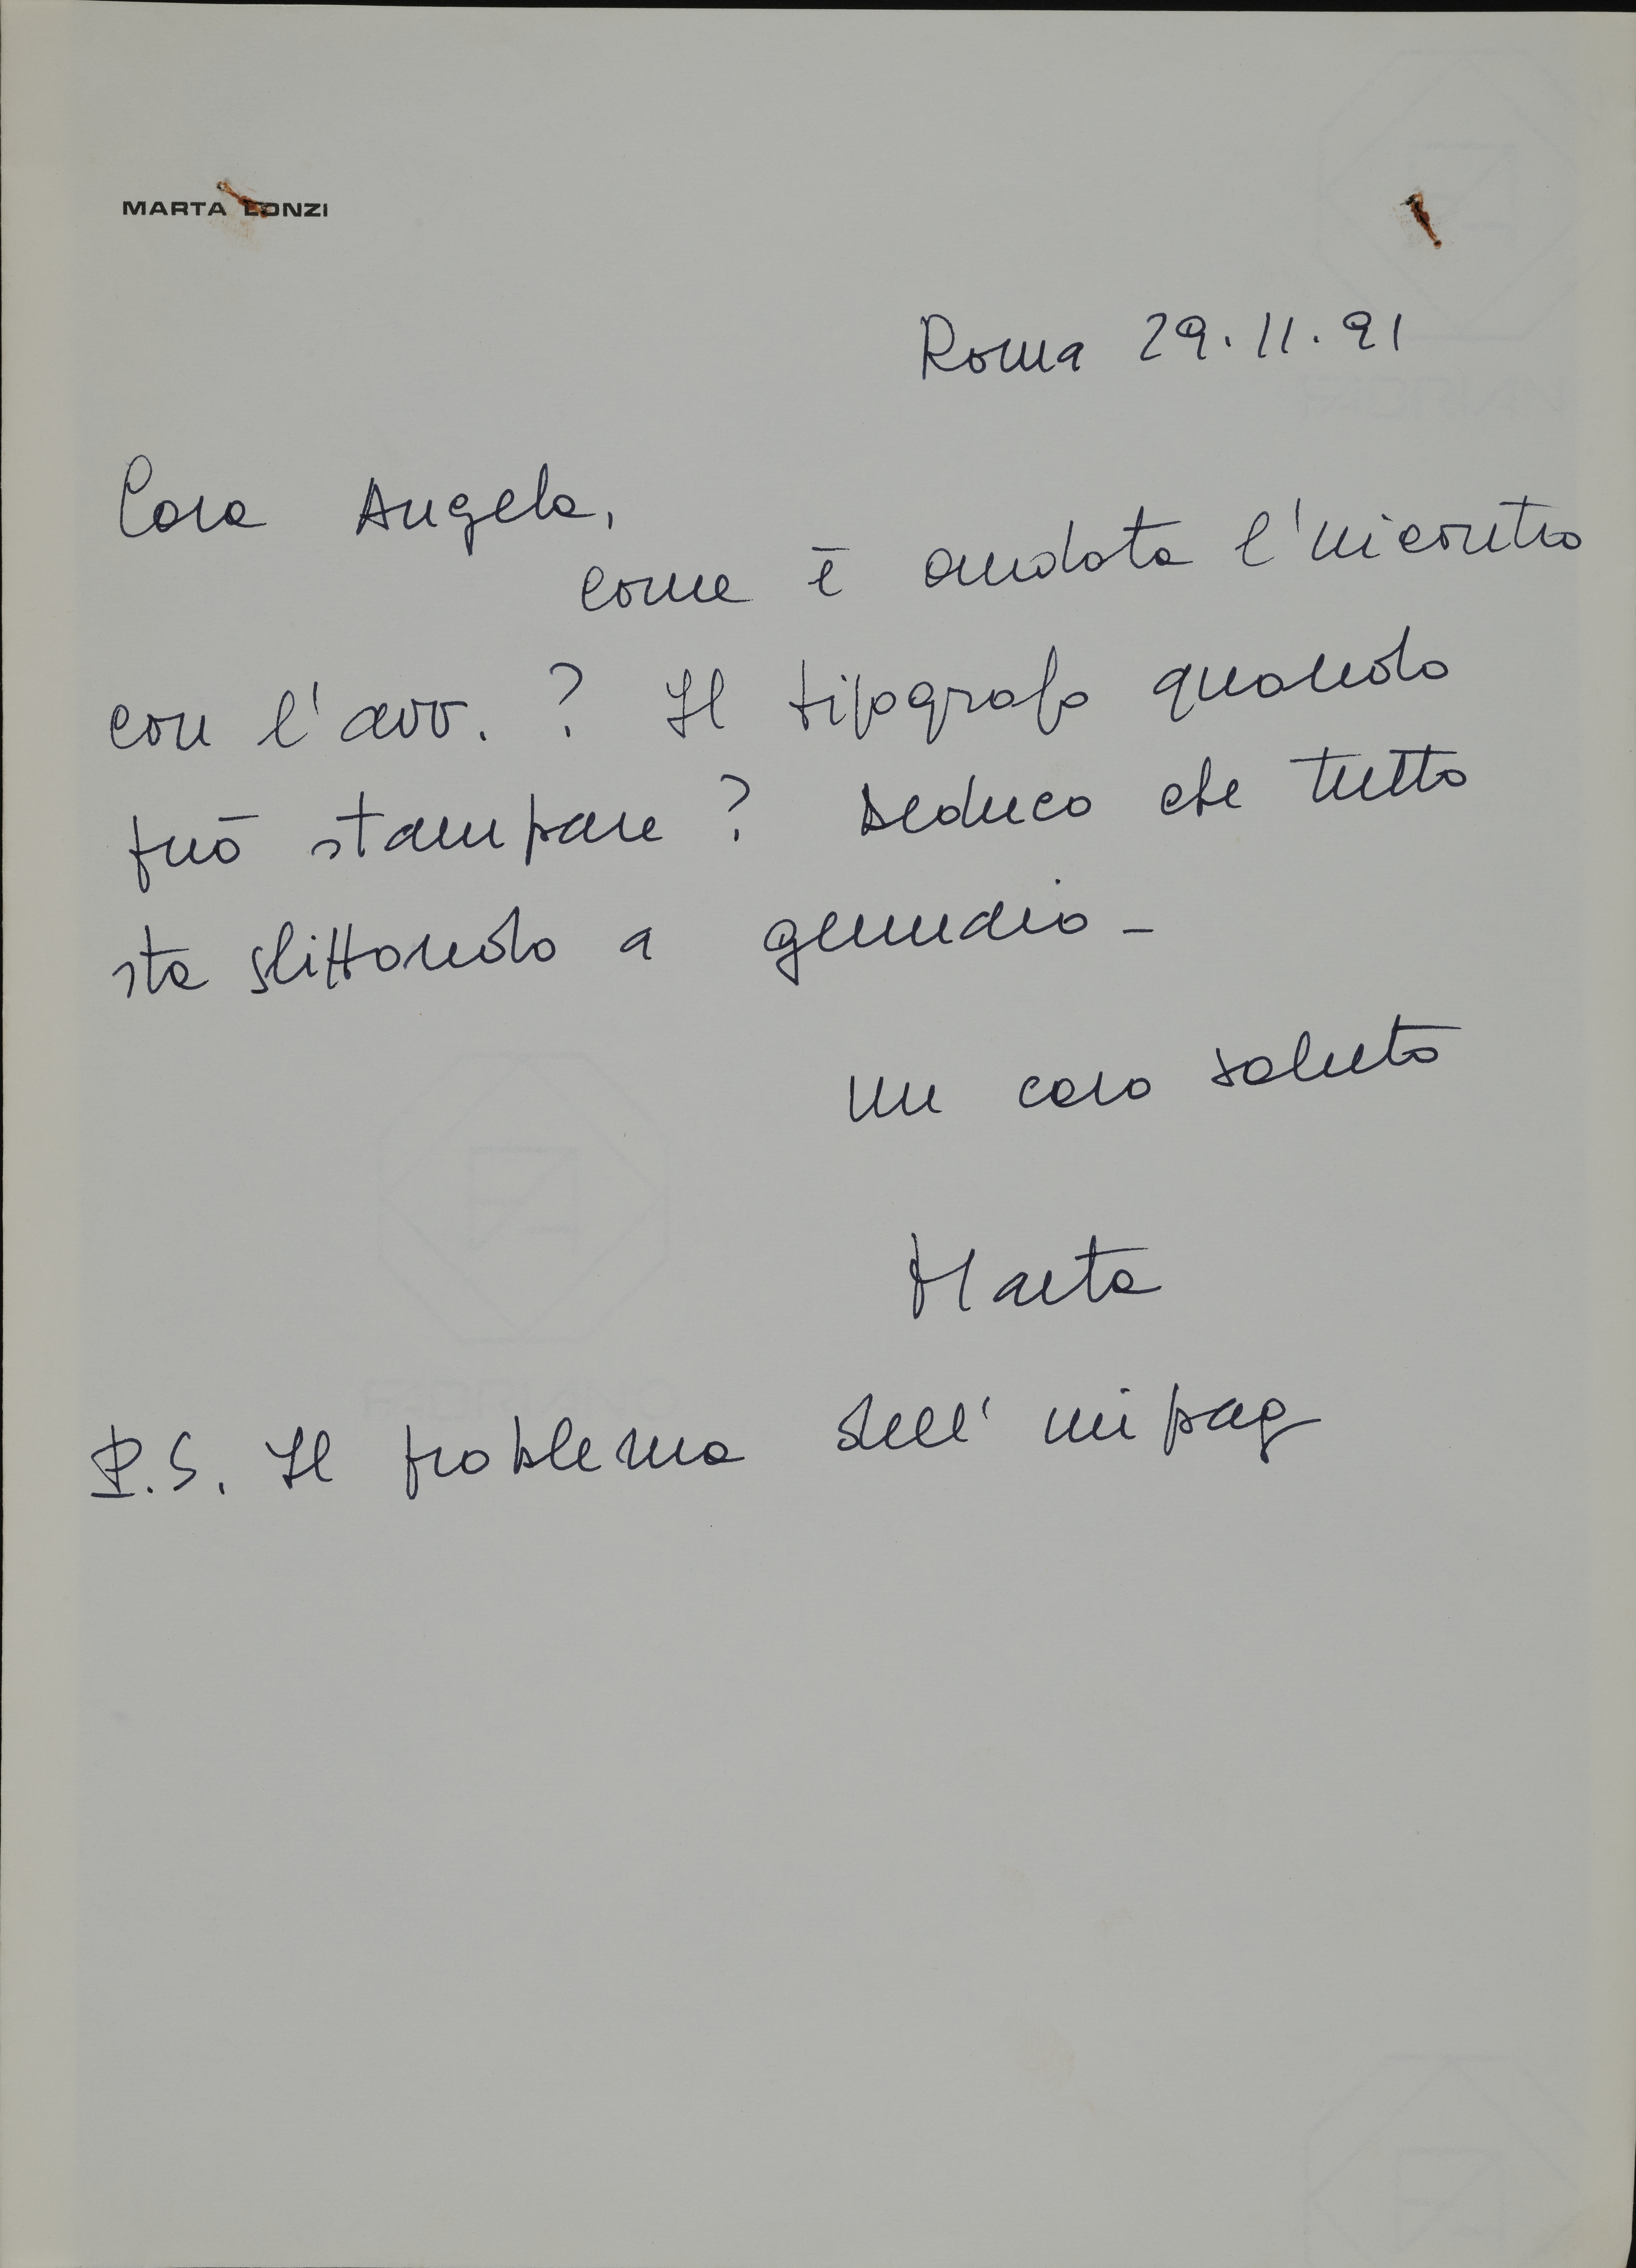 MARTA LONZI
Roma 29.11.91
Cara Angela,
come è andata l'incontro
con l'avv. ? Il tipografo quando
può stampare ? Deduco che tutto
sta slittando a gennaio -
un caro saluto
Marta
P.S. Il problema dell' impag